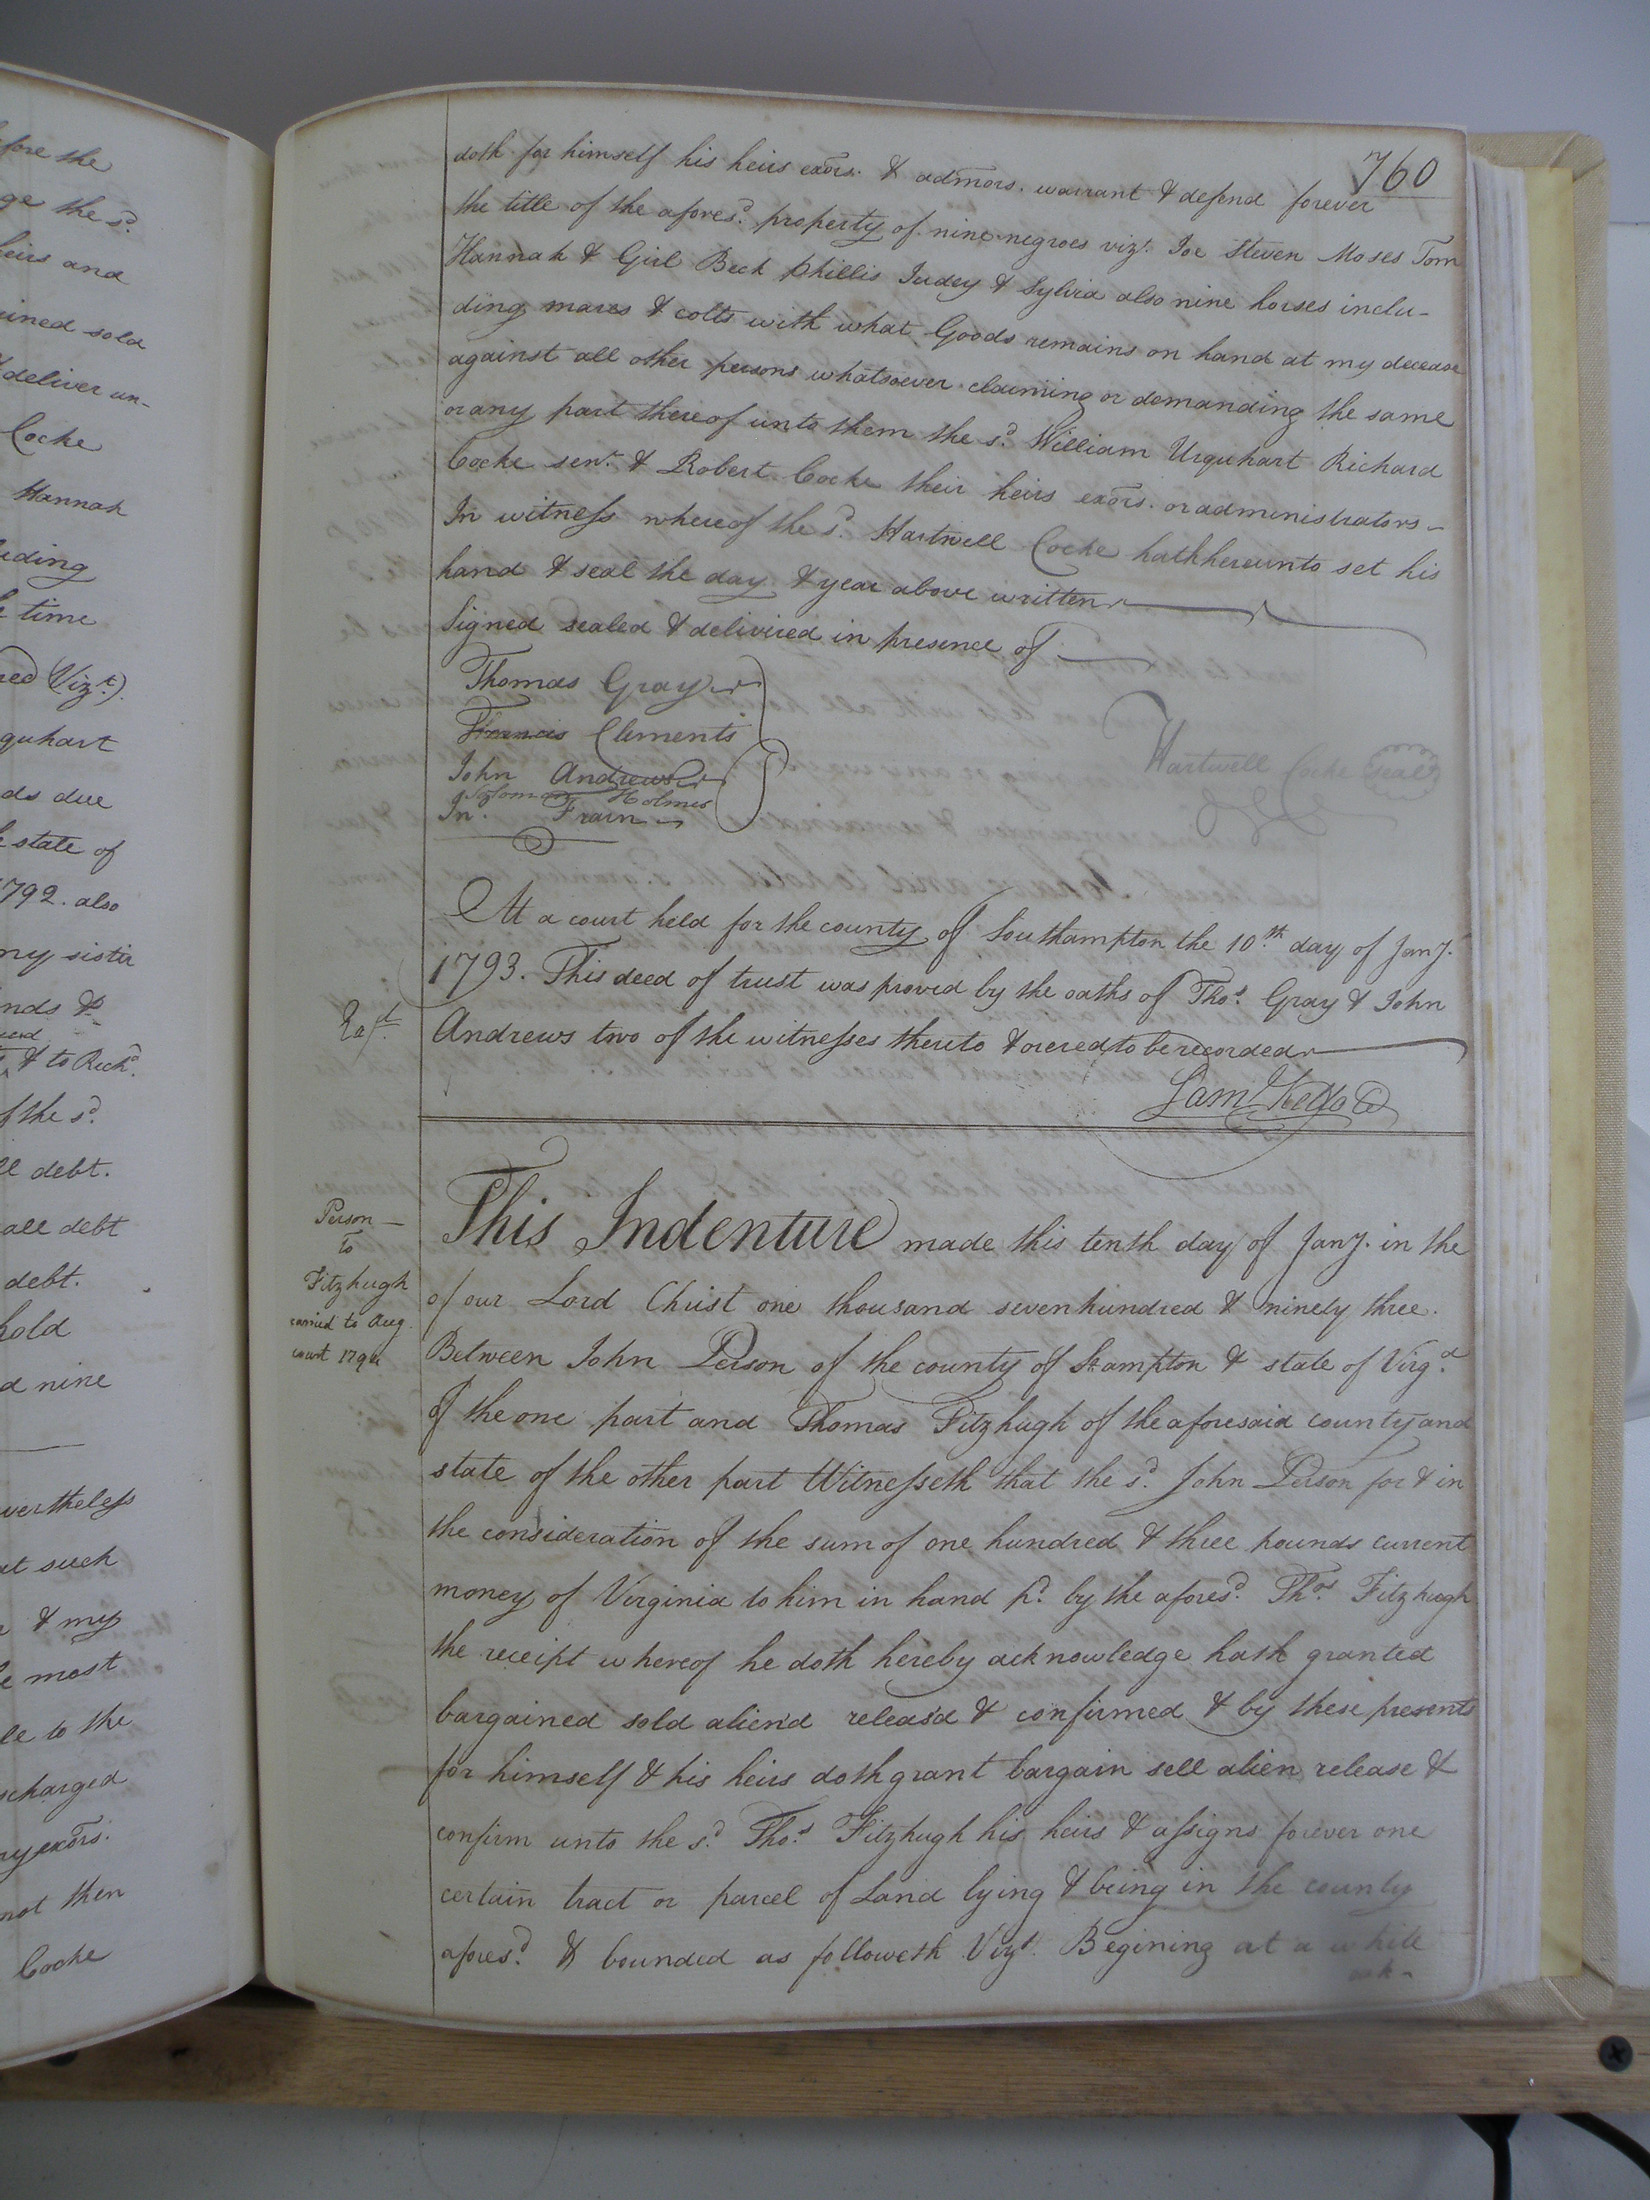 fore the
ge the sd.
heirs and
ained sold
deliver un-
Cocke
Hannah
uding
time
red Vizt).
quhart
ds due
state of
1792. also
my sister
nds &
& to Richd.
f the sd.
debt.
all debt
debt.
hold
d nine
vertheless
at such
& my
e most
le to the
scharged
my exõrs.
not then
Cocke
760
doth for himself his heirs exõrs. & admõrs. warrant & defend forever
the title of the aforesd. property of nine negroes vizt. Joe Steven Moses Tom
Hannah & Girl Beck Phillis Judey & Sylvia also nine horses inclu-
ding mares & colts with what Goods remains on hand at my decease
against all other persons whatsoever claiming or demanding the same
or any part thereof unto them the sd. William Urquhart Richard
Cocke senr. & Robert Cocke their heirs exõrs. or administrators
In witness whereof the sd. Hartwell Cocke hath hereunto set his
hand & seal the day & year above written
Signed sealed & delivered in presence of
Thomas Gray
Francis Clements
John Andrews
Solomon Holmes
Jno. Frain
Hartwell Cocke seal
At a court held for the county of Southampton the 10th. day of Jany.
1793. This deed of trust was proved by the oaths of Thos. Gray & John
Andrews two of the witnesses thereto & ordered to be recorded
Saml. Kello
Person
To
Fitzhugh
carried to Aug.
court
This Indenture made this tenth day of Jany. in the
of our Lord Christ one thousand seven hundred & ninety three.
Between John Person of the county of Sthampton & state of Virga.
of the one part and Thomas Fitzhugh of the aforesaid county and
state of the other part Witnesseth that the sd. John Person for & in
the consideration of the sum of one hundred & three pounds current
money of Virginia to him in hand pd. by the aforesd. Thos. Fitzhugh
the receipt whereof he doth hereby acknowledge hath granted
bargained sold alien'd releas'd & confirmed & by these presents
for himself & his heirs doth grant bargain sell alien release &
confirm unto the sd. Thos. Fitzhugh his heirs & assigns forever one
certain tract or parcel of Land lying & being in the county
aforesd. & bounded as followeth Vizt. Begining at a white
oak